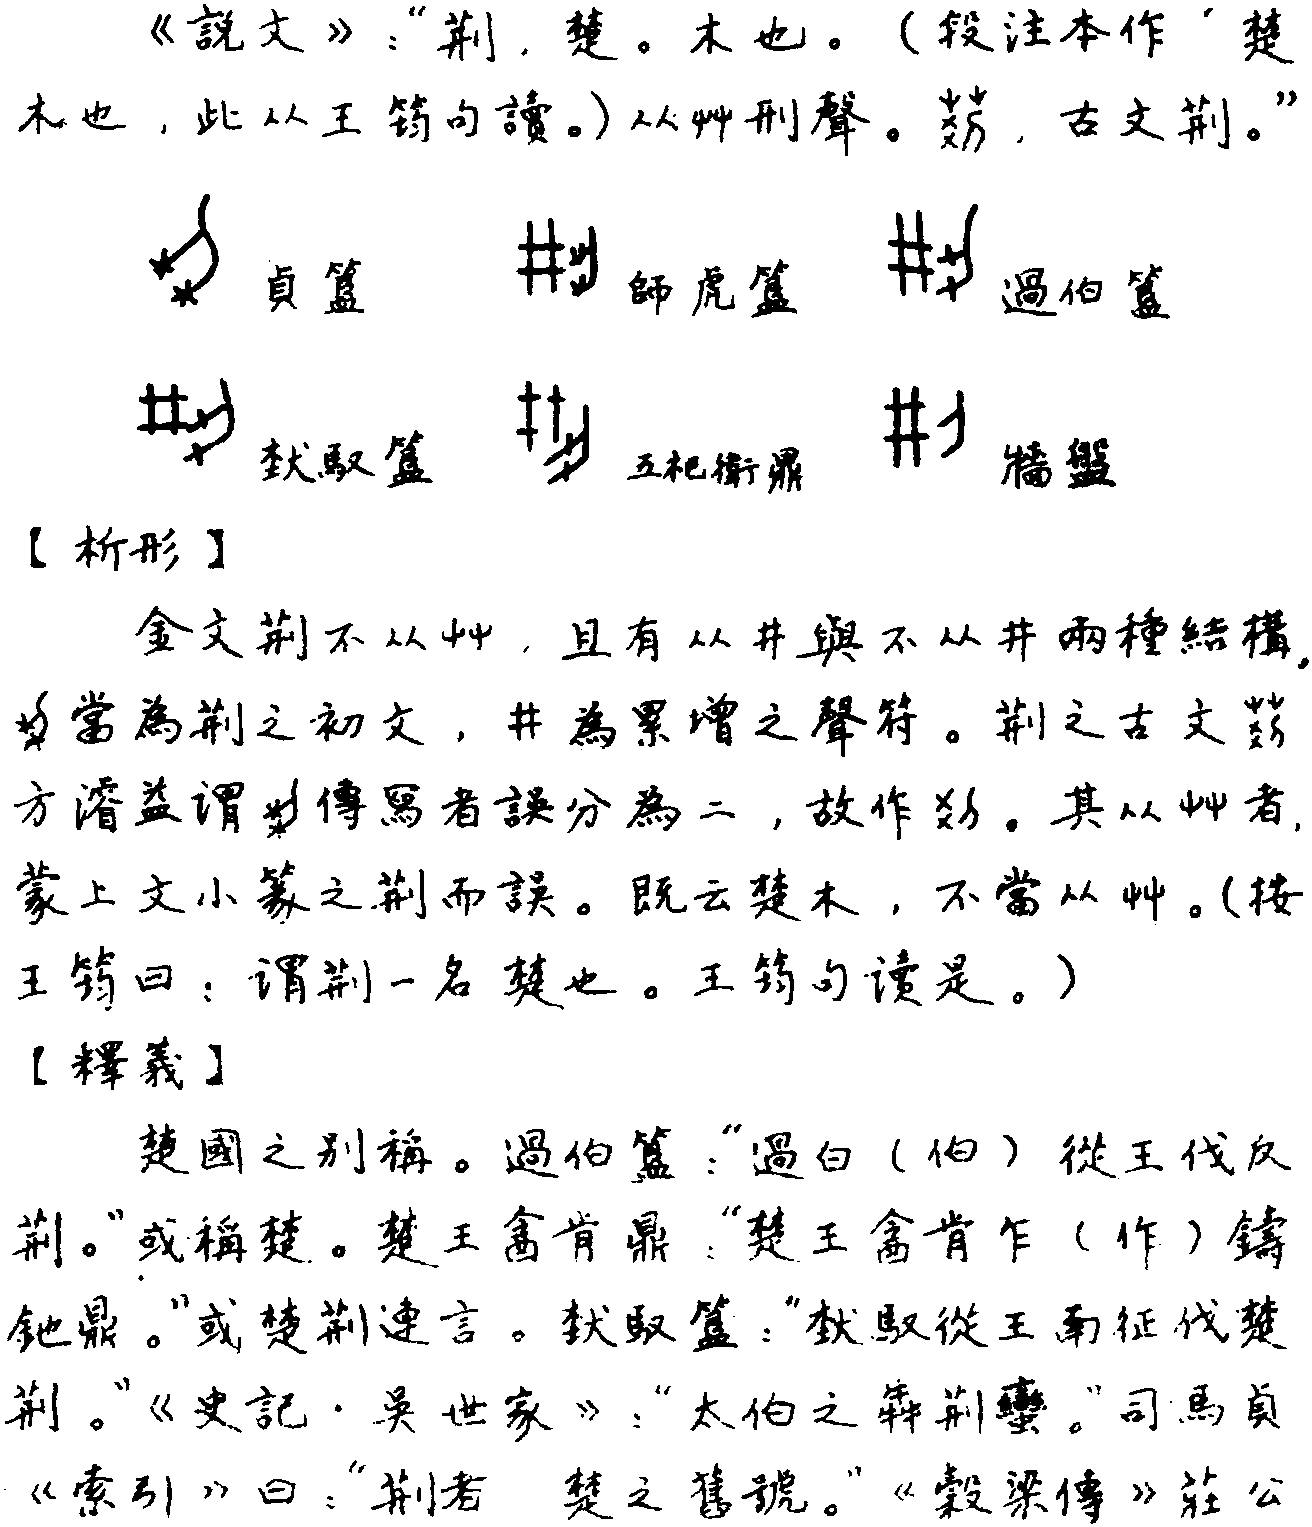 《説文》：“荆，楚。木也。（段注本作‘楚
木也，此从王筠句讀。）从艸刑聲。𦵢，古文荆。”
貞簋 師虎簋 過伯簋
㺇馭簋 五祀衛鼎 牆盤
【析形】
金文荆不从艸，且有从井與不从井兩種結構，
當為荆之初文，井為累增之聲符。荆之古文
方濬益谓傳寫者誤分為二，故作。其从艸者，
蒙上文小篆之荆而誤。既云楚木，不當从艸。（按
王筠曰：謂荆一名楚也。王筠句读是。）
【釋義】
楚國之别稱。過伯簋：“過白（伯）從王伐反
荆。”或稱楚。楚王酓肯鼎：“楚王酓肯乍（作）鑄
鉈鼎。”或楚荆連言。㺇馭簋：“㺇馭從王南征伐楚
荆。”《史記·吳世家》：“太伯之犇荆蠻。”司馬貞
《索引》曰：“荆者 楚之舊號。”《穀梁傳》莊公